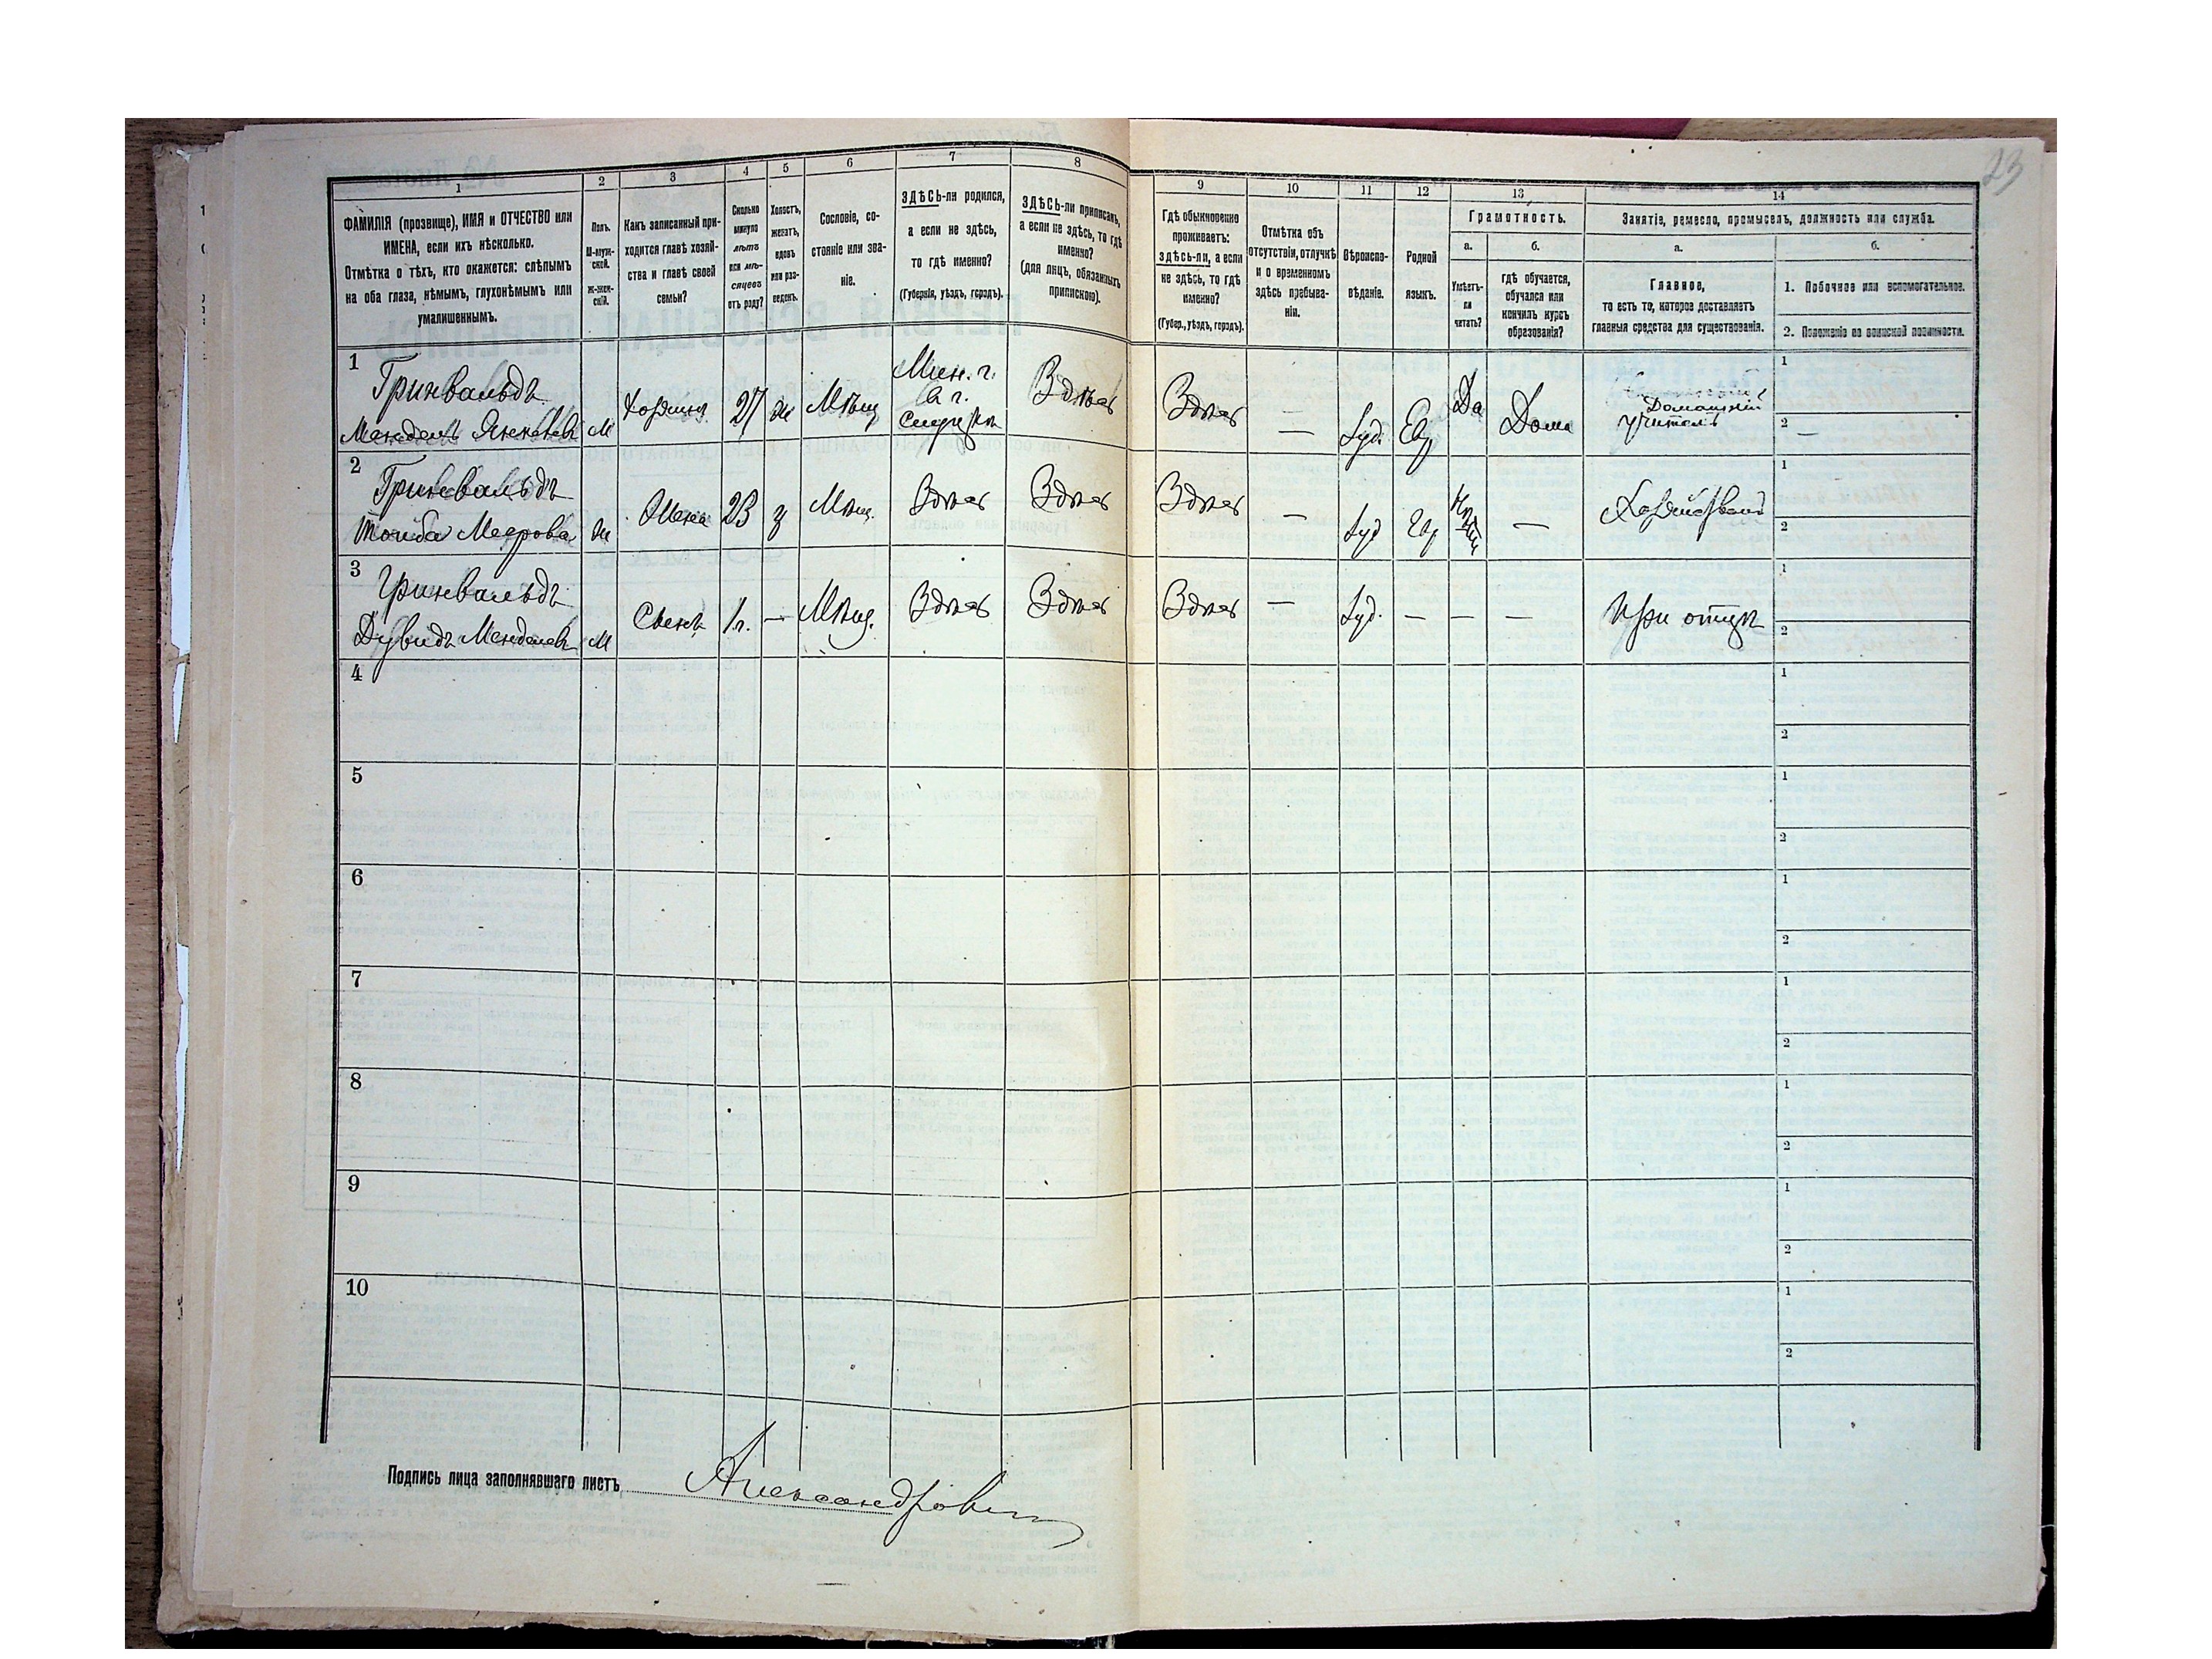 23
1 2 3 4 5 6 7 8 9 10 11 12 13 14
ФАМИЛІЯ (прозвище), ИМЯ и ОТЧЕСТВО или
ИМЕНА, если ихъ нѣсколько.
Отмѣтка о тѣхъ, кто окажется: слѣпымъ
на оба глаза, нѣмымъ, глухонѣмымъ или
умалишеннымъ.
Полъ.
М-муж-
ской.
Ж-жен-
скій.
Какъ записанный при-
ходится главѣ хозяй-
ства и главѣ своей
семьи?
Сколько
минуло
лѣтъ
или мѣ-
сяцевъ
отъ роду?
Холостъ,
женатъ,
вдовъ
или раз-
веденъ.
Сословіе, со-
стояніе или зва-
ніе.
ЗДѢСЬ-ли родился,
а если не здѣсь,
то гдѣ именно?
(Губернія, уѣздъ, городъ).
ЗДѢСЬ-ли приписанъ,
а если не здѣсь, то гдѣ
именно?
(для лицъ, обязанныхъ
припискою).
Гдѣ обыкновенно
проживаетъ:
здѣсь-ли, а если
не здѣсь, то гдѣ
именно?
(Губер., уѣздъ, городъ).
Отмѣтка объ
отсутствіи, отлучкѣ
и о временномъ
здѣсь пребыва-
ніи.
Вѣроиспо-
вѣданіе.
Родной
языкъ.
Грамотность.
а.
Умѣетъ-
ли
читать?
б.
гдѣ обучается,
обучался или
кончилъ курсъ
образованія?
Занятіе, ремесло, промыселъ, должность или служба.
а.
Главное,
то есть то, которое доставляетъ
главныя средства для существованія.
б.
1. Побочное или вспомогательное.
2. Положеніе по воинской повинности.
1
Гринвальдъ
Мендель Янкелевъ М Хозяинъ 27 ж Мѣщ Мин. г. Здѣсь Здѣсь — Іуд. Евр Да Дома Домашній
учитель
1
2 —
2
Гринвальдъ
Тойба Меерова ж Жена 23 з Мѣщ. Здѣсь Здѣсь Здѣсь — Іуд Евр — Хозяйство
1
2
3
Гринвальдъ
Дувидъ Менделевъ М Сынъ 1 г. — Мѣщ. Здѣсь Здѣсь Здѣсь — Іуд. — — — При отцѣ
1
2
4
1
2
5
1
2
6
1
2
7
1
2
8
1
2
9
1
2
10
1
2
Подпись лица заполнявшаго листъ